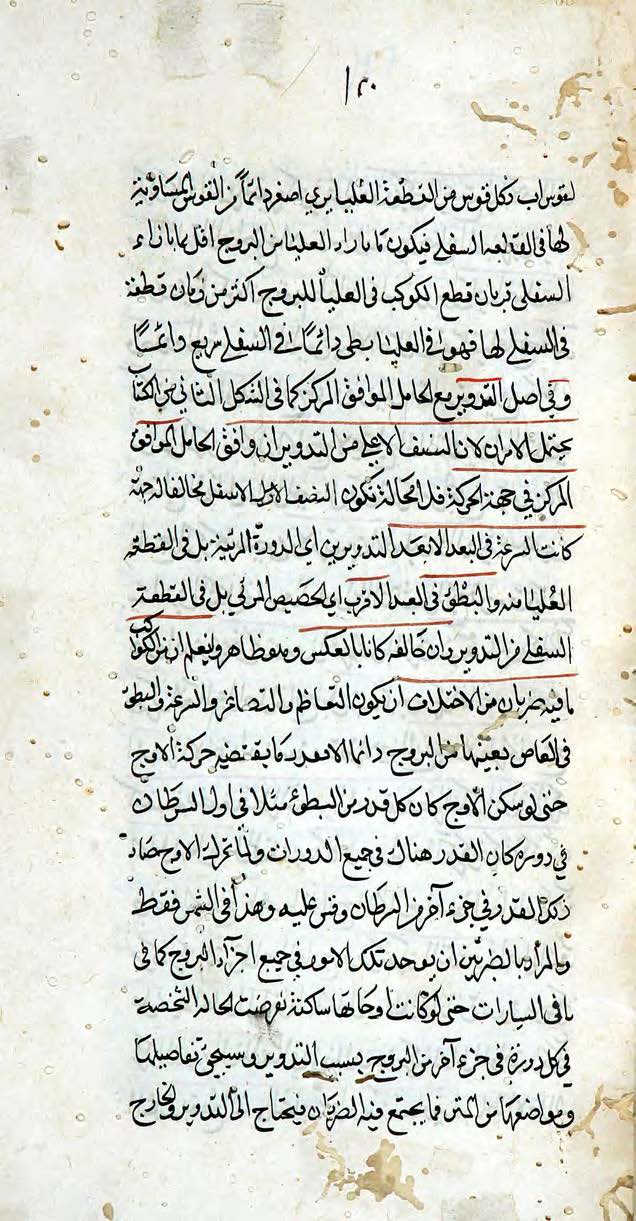 ١٢٠
لقوس اب وكل قوس من القطعة العليا يري اصغر دائما من القوس المساوية
لها في القطعه السفلي فيكون ما بازاء العليا من البروج اقل مما بازاء
السفلي فزمان قطع الكوكب في العليا للبروج اكثر من زمان قطعه
في السفلي لها فهو في العليا بطى دائمًا و في السفلي سريع دائمًا
و في اصل التدوير مع الحامل الموافق المركز كما في الشكل الثاني من الكتاب
يحتمل الامران لان النصف الاعلي من التدوير ان وافق الحامل الموافق
المركز في جهة الحركة فلا محالة تكون النصف الاسفل مخالفا له جهة
كانت السرعة في البعد الابعد التدويرين اي الذروة المرئية بل في القطعه
العليا منه والبطؤ في البعد الاقرب اي الحضيض المرئي بل في القطعة
السفلي من التدوير وان خالفه كانا بالعكس وهو ظاهر وليعلم ان من الكواكب
ما فيه ضربان من الاختلاف ان يكون التعاظم والتصاغر والسرعة والبطؤ
في بعينها من البروج دائما الا بقدر ما يقتضيه حركة الاوج
حتى لو سكن الاوج كان كل قدر من البطؤ مثلا في اول السرطان
في دورة كان القدر هناك في جميع الدورات ولما تحرك الاوج صار
ذلك القدر في جزء آخر من السرطان وقس عليه وهذا في الشمس فقط
وبالمراد بالضربين ان يوجد تلك الامور في جميع اجزاء البروج كما في
باقي السيارات حتى لو كانت اوجاتها ساكنة تعرضت الحالة الشخصة
في كل دورة في جزء آخر من البروج بسبب التدوير وسيجئ تفاصيلها
ومواضعها من المتن فما يجتمع فيه الضربان فيحتاج الى التدوير والخارج